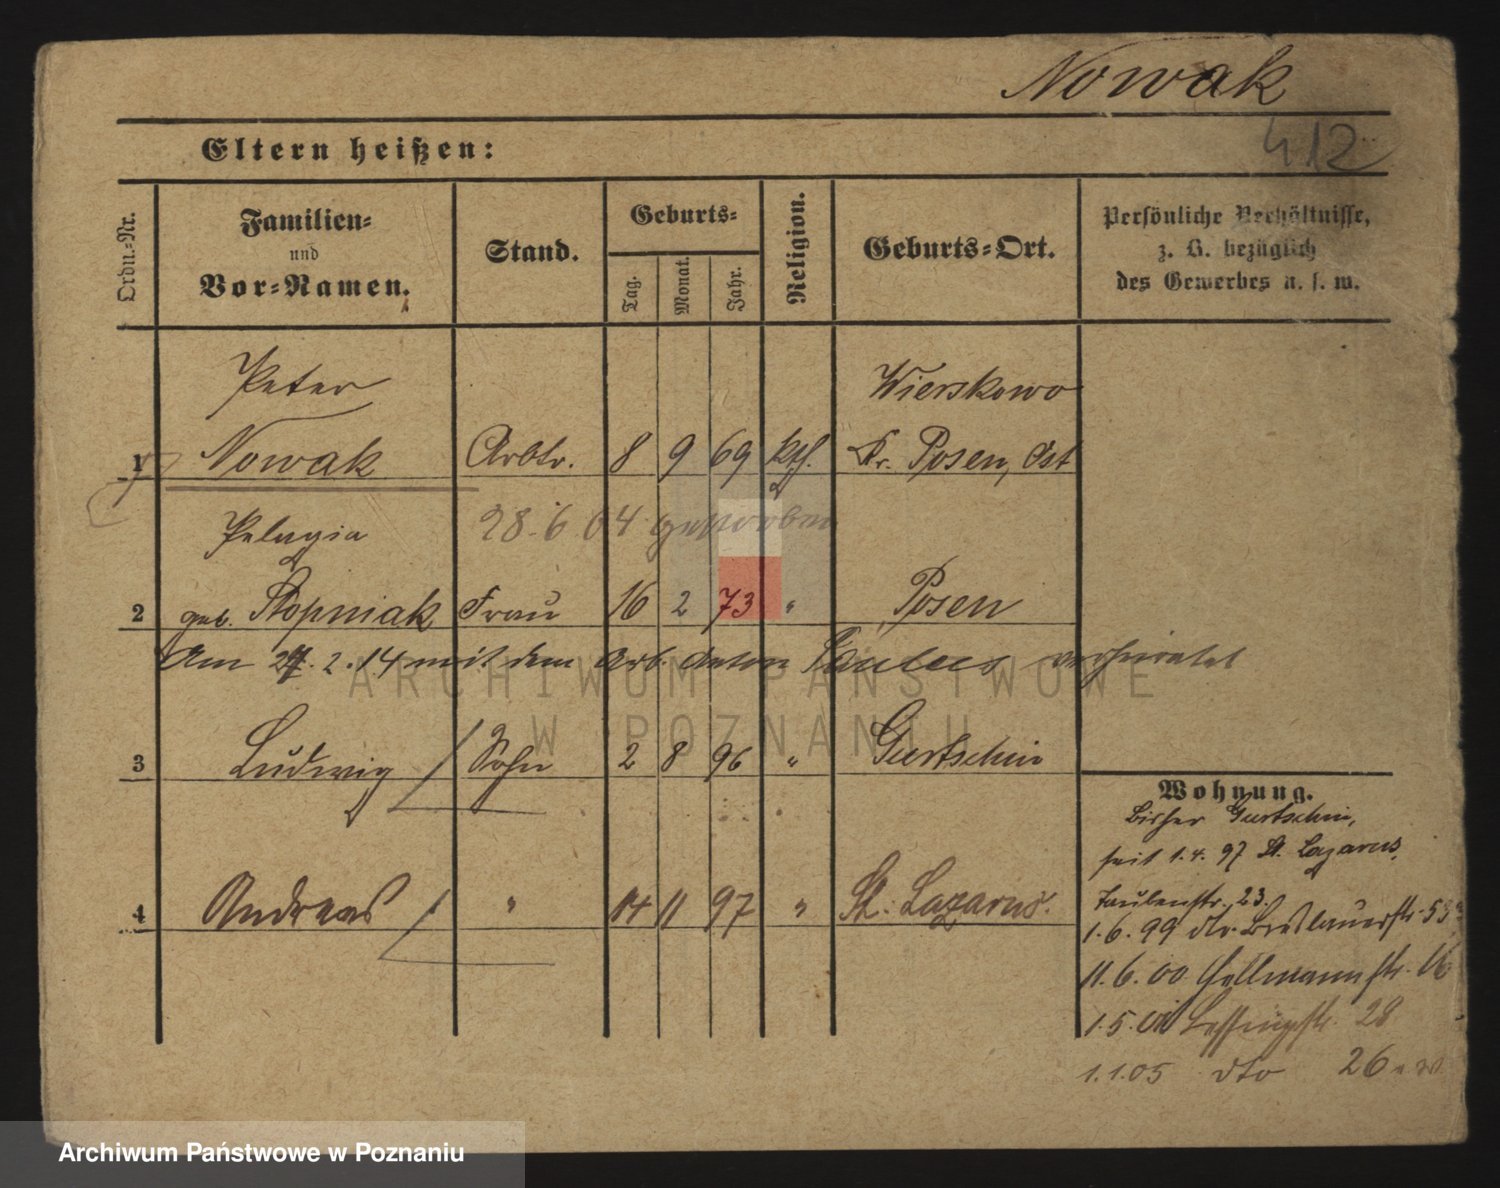 Nowak
412
Eltern heißen:
Ordn.-Nr.
Familien-
und
Vor-Namen.
Stand.
Geburts-
Tag.
Monat.
Jahr.
Religion.
Geburts-Ort.
Persönliche Verhältnisse,
z. B. bezüglich
des Gewerbes u. s. w.
Peter
Wierskowo
1 Nowak Arbtr. 8 9 69 kth. Kr. Posen, Ost
Pelagia 28.6.04 gestorben
2 geb. Stopniak Frau 16 2 73 " Posen
Am 27.2.14 mit dem Arb. Anton verheiratet
3 Ludwig Sohn 2 8 96 " Gurtschin
4 Andreas " 14 11 97 " St. Lazarus.
Wohnung.
Bisher Gurtschin,
seit 1.4.97 St. Lazarus,
23.
1.6.99 dto. Breslauerstr. 53
11.6.00 Hellmannstr. 16
1.5.01 Lessingstr. 28
1.1.05 dto 26
ARCHIWUM PAŃSTWOWE
W POZNANIU
Archiwum Państwowe w Poznaniu